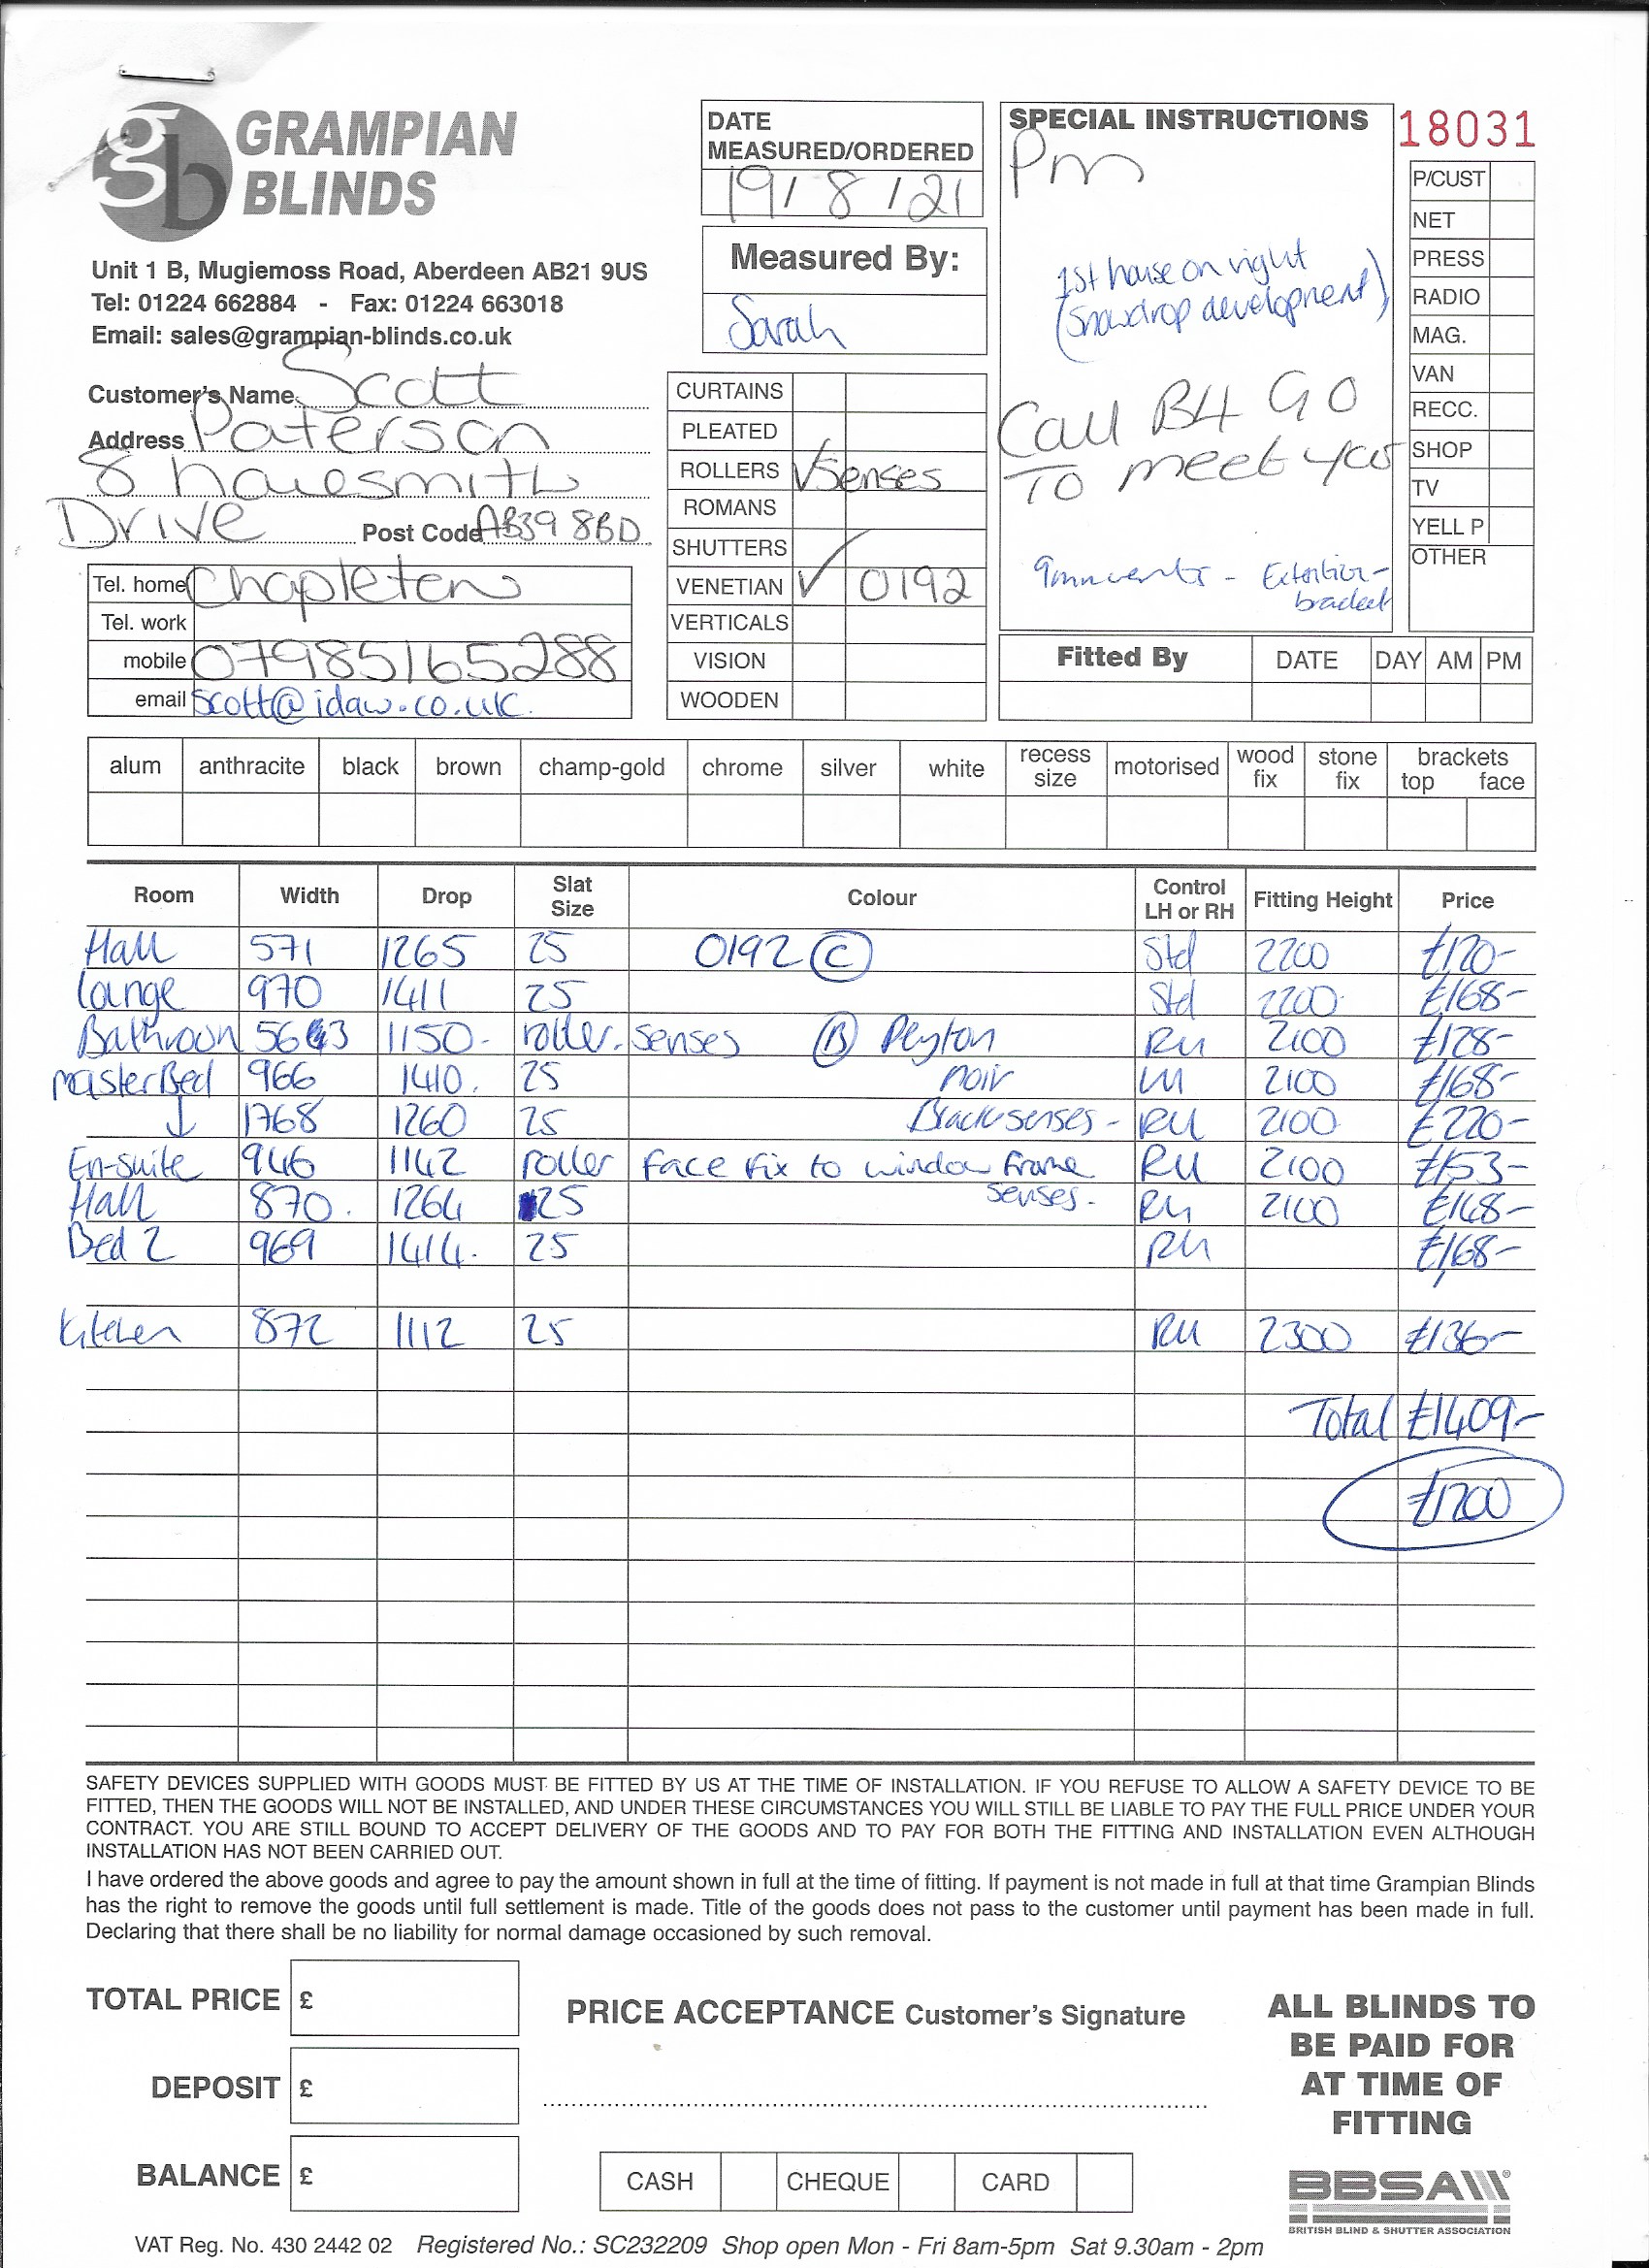 gb GRAMPIAN BLINDS
Unit 1 B, Mugiemoss Road, Aberdeen AB21 9US
Tel: 01224 662884 - Fax: 01224 663018
Email: sales@grampian-blinds.co.uk
DATE MEASURED/ORDERED
19/8/21
Measured By:
Sarah
SPECIAL INSTRUCTIONS
Pm
1st house on right
(Snowdrop development)
Call B4 GO
TO meet you
9mm vents - Extention-
bracket
18031
P/CUST
NET
PRESS
RADIO
MAG.
VAN
RECC.
SHOP
TV
YELL P
OTHER
Customer's Name Scott
Address Paterson
8
Drive Post Code AB39 8BD
Tel. home Chapleton
Tel. work
mobile 07985165288
email scott@idaw.co.uk.
CURTAINS
PLEATED
ROLLERS ✓ Senses
ROMANS
SHUTTERS
VENETIAN ✓ 0192
VERTICALS
VISION
WOODEN
Fitted By DATE DAY AM PM
alum anthracite black brown champ-gold chrome silver white recess size motorised wood fix stone fix brackets top face
Room Width Drop Slat Size Colour Control LH or RH Fitting Height Price
Hall 571 1265 25 0192 (C) Std 2200 £120-
lounge 970 1411 25 Std 2200 £168-
Bathroom 1150- roller. senses (B) Peyton RH 2100 £128-
masterBed 966 1410. 25 noir LH 2100 £168-
↓ 1768 1260 25 Blacksenses- RH 2100 £220-
En-suite 946 1142 roller face fix to window frame RH 2100 £153-
senses-
Hall 870. 1264 25 RH 2100 £148-
Bed 2 969 1414. 25 RH £168-
Kitchen 872 1112 25 RH 2300 £136-
Total £1409-
£1200
SAFETY DEVICES SUPPLIED WITH GOODS MUST BE FITTED BY US AT THE TIME OF INSTALLATION. IF YOU REFUSE TO ALLOW A SAFETY DEVICE TO BE
FITTED, THEN THE GOODS WILL NOT BE INSTALLED, AND UNDER THESE CIRCUMSTANCES YOU WILL STILL BE LIABLE TO PAY THE FULL PRICE UNDER YOUR
CONTRACT. YOU ARE STILL BOUND TO ACCEPT DELIVERY OF THE GOODS AND TO PAY FOR BOTH THE FITTING AND INSTALLATION EVEN ALTHOUGH
INSTALLATION HAS NOT BEEN CARRIED OUT.
I have ordered the above goods and agree to pay the amount shown in full at the time of fitting. If payment is not made in full at that time Grampian Blinds
has the right to remove the goods until full settlement is made. Title of the goods does not pass to the customer until payment has been made in full.
Declaring that there shall be no liability for normal damage occasioned by such removal.
TOTAL PRICE £
DEPOSIT £
BALANCE £
PRICE ACCEPTANCE Customer's Signature
CASH CHEQUE CARD
ALL BLINDS TO
BE PAID FOR
AT TIME OF
FITTING
BBSA
BRITISH BLIND & SHUTTER ASSOCIATION
VAT Reg. No. 430 2442 02 Registered No.: SC232209 Shop open Mon - Fri 8am-5pm Sat 9.30am - 2pm